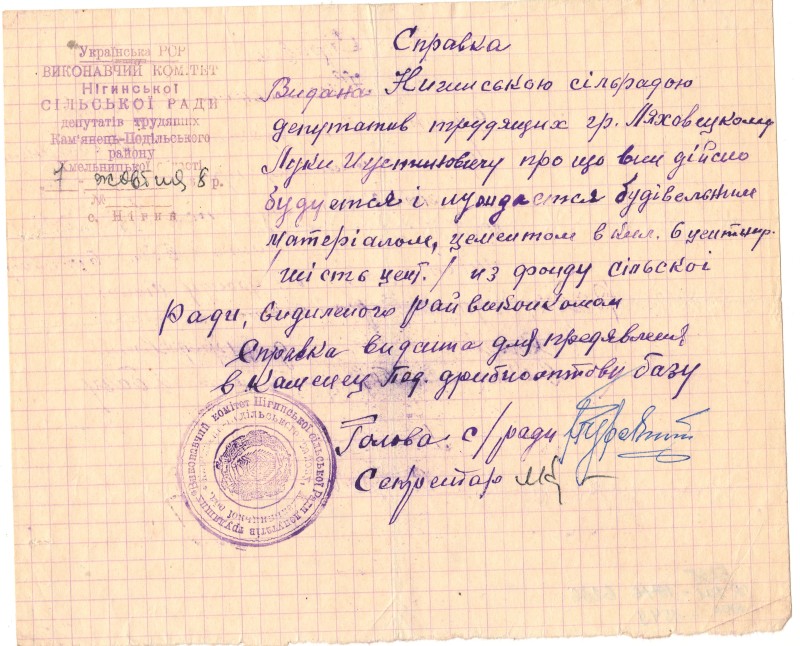 Українська РСР
ВИКОНАВЧИЙ КОМІТЕТ
Нігинської
СІЛЬСЬКОЇ РАДИ
депутатів трудящих
Кам'янець-Подільського
району
Хмельницької області
7 жовтня 8 р.
№
с. Нігин
Справка
Видана Нигинською сільрадою
депутатив трудящих гр. Ляховецкому
Луки Иустиновичу про що вин дійсно
будуется і нуждается будівельним
матеріалом, цементом в кил. 6 центнир.
/шість цент./ из фонду сільскої
ради, видиленого райвиконкомам
Справка видана для предявления
в Каменец Под. дрибнооптову базу
Голова с/ради
Секретар